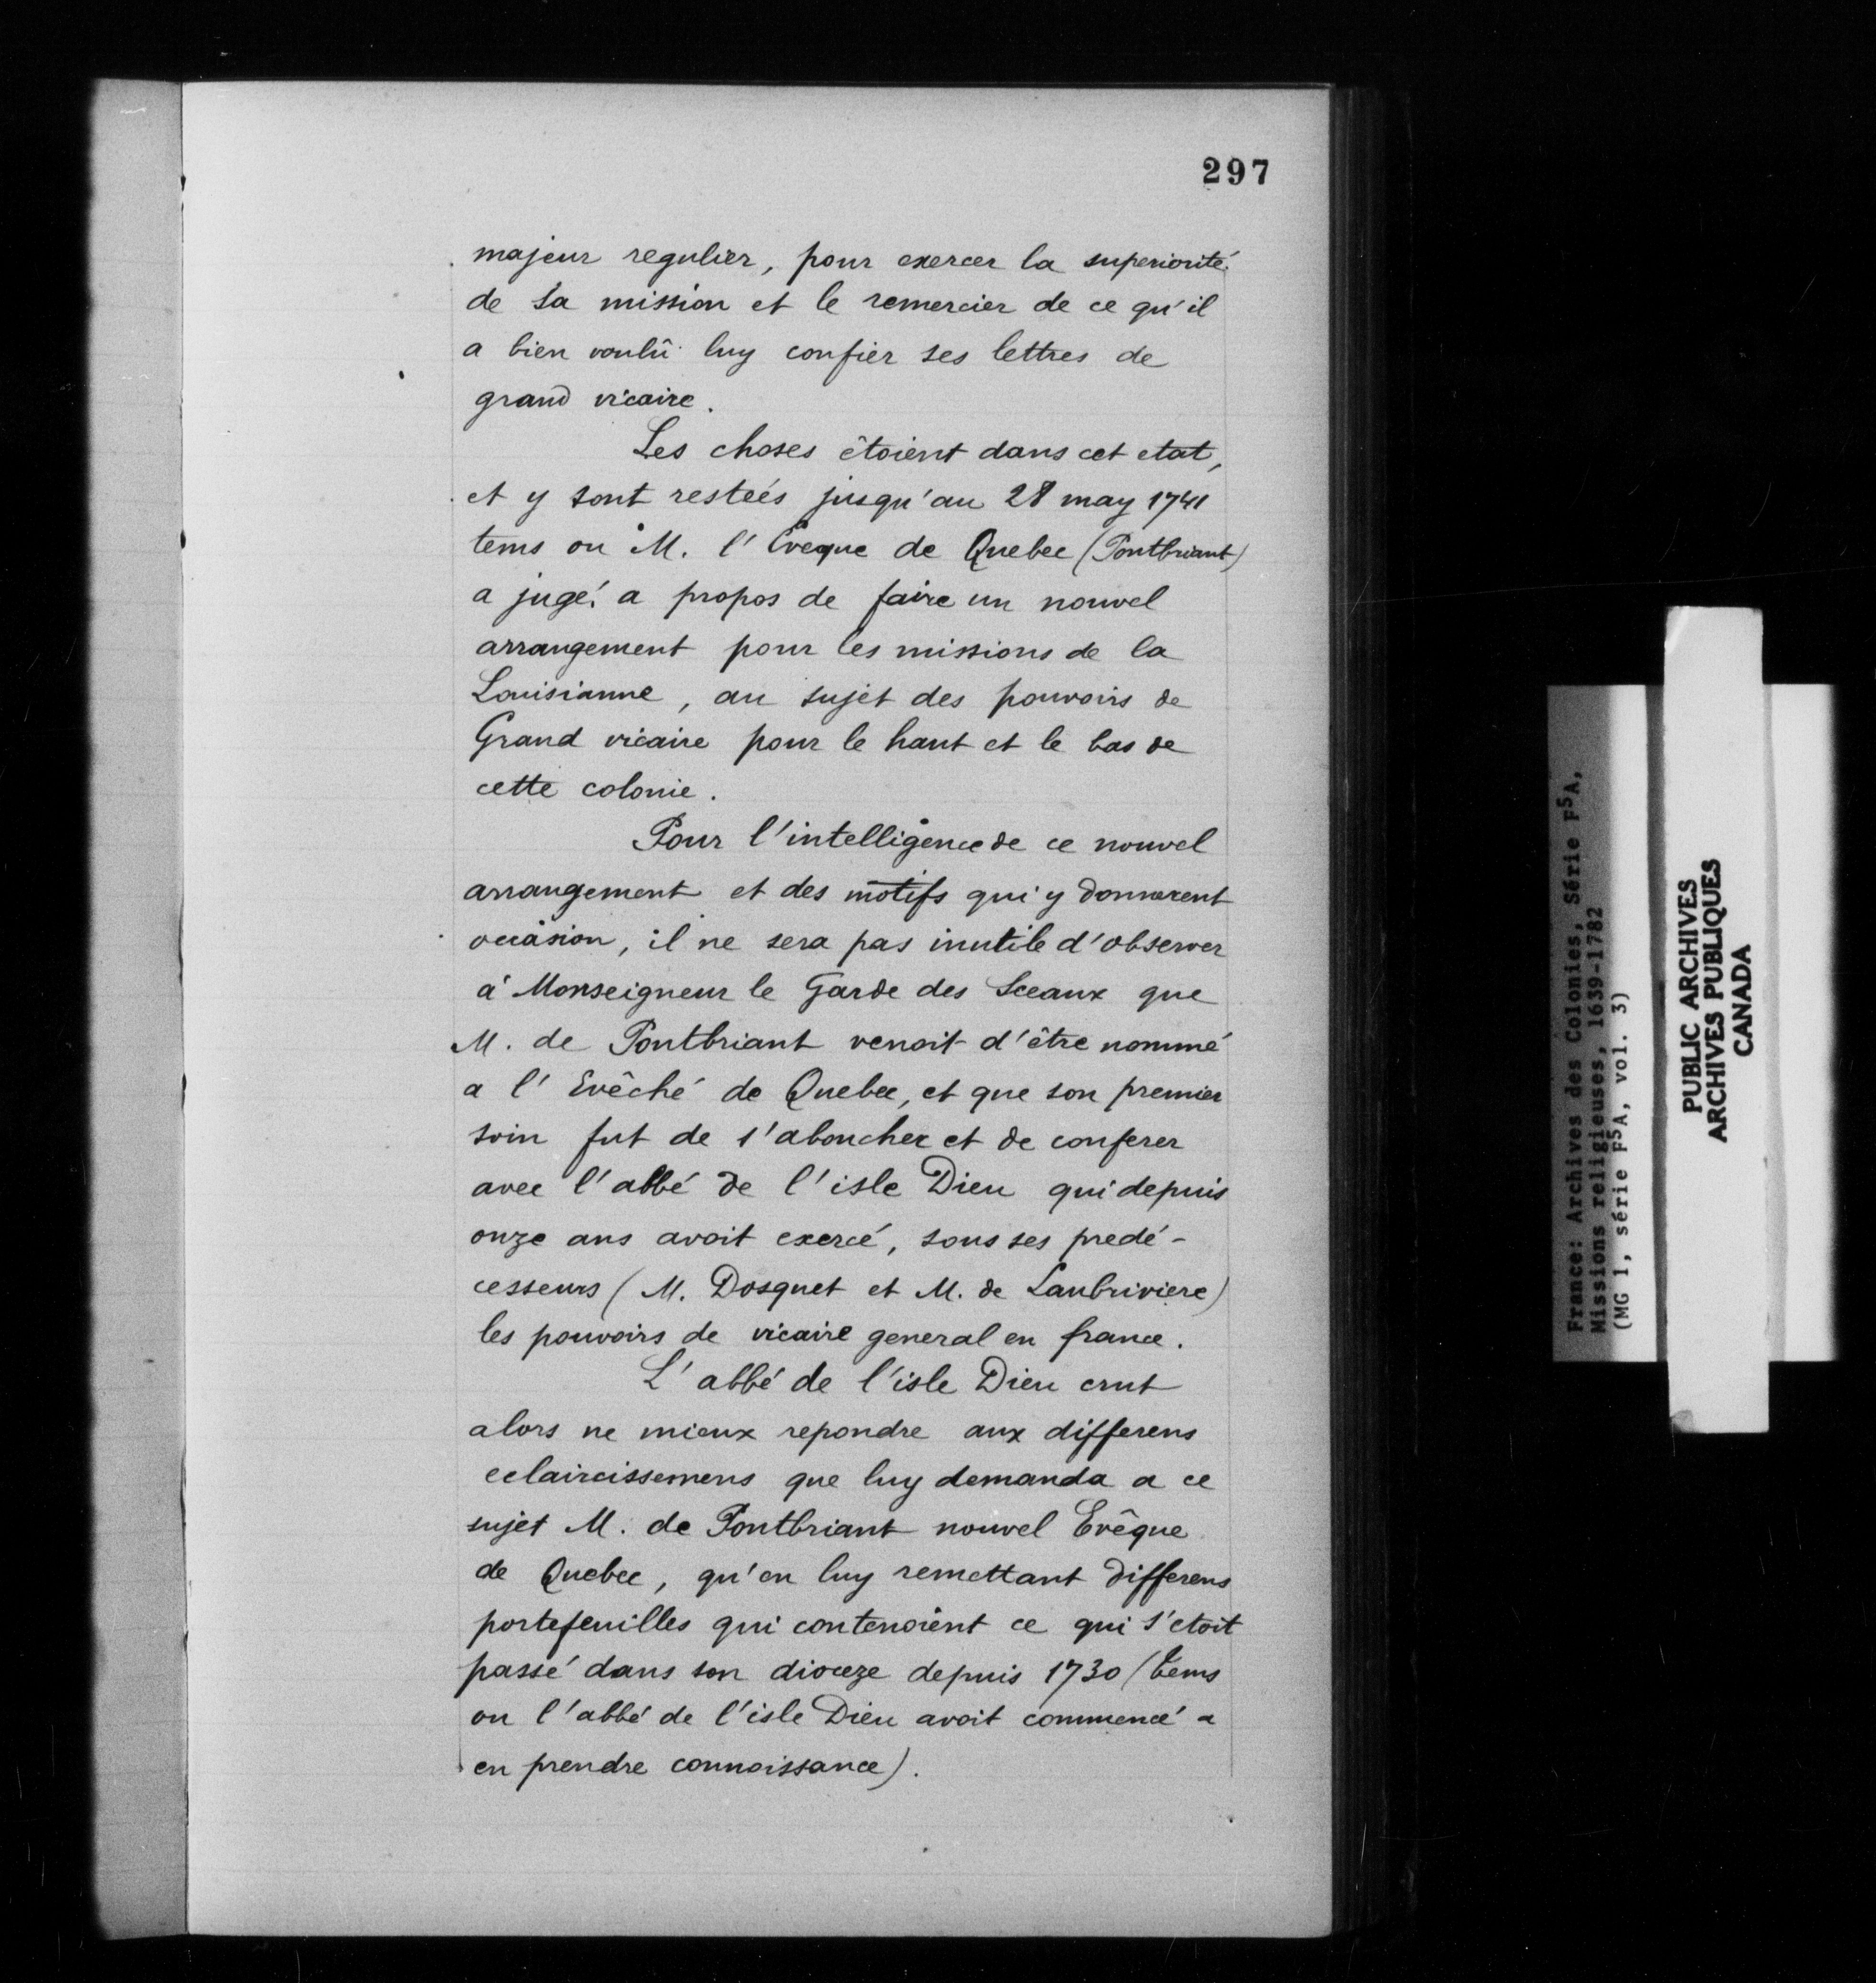 297
majeur regulier, pour exercer la superiorité
de sa mission et le remercier de ce qu'il
a bien voulû luy confier ses lettres de
grand vicaire.
Les choses êtoient dans cet etat,
et y sont restées jusqu'au 28 may 1741
tems ou M. l'Eveque de Quebec (Pontbriant)
a jugé a propos de faire un nouvel
arrangement pour les missions de la
Louisianne, au sujet des pouvoirs de
Grand vicaire pour le haut et le bas de
cette colonie.
Pour l'intelligence de ce nouvel
arrangement et des motifs qui y donnerent
occasion, il ne sera pas inutile d'observer
à Monseigneur le Garde des Sceaux que
M. de Pontbriant venoit d'être nommé
a l'Evêché de Quebec, et que son premier
soin fut de s'aboucher et de conferer
avec l'abbé de l'isle Dieu qui depuis
onze ans avoit exercé, sous ses predé-
cesseurs (M. Dosquet et M. de Laubriviere)
les pouvoirs de vicaire general en france.
L'abbé de l'isle Dieu crut
alors ne mieux repondre aux differens
eclaircissemens que luy demanda a ce
sujet M. de Pontbriant nouvel Evêque
de Quebec, qu'en luy remettant differens
portefeuilles qui contenoient ce qui s'etoit
passé dans son dioceze depuis 1730 (tems
ou l'abbé de l'isle Dieu avoit commencé a
en prendre connoissance).
France: Archives des Colonies, Série F5A,
Missions religieuses, 1639-1782
(MG 1, série F5A, vol. 3)
PUBLIC ARCHIVES
ARCHIVES PUBLIQUES
CANADA